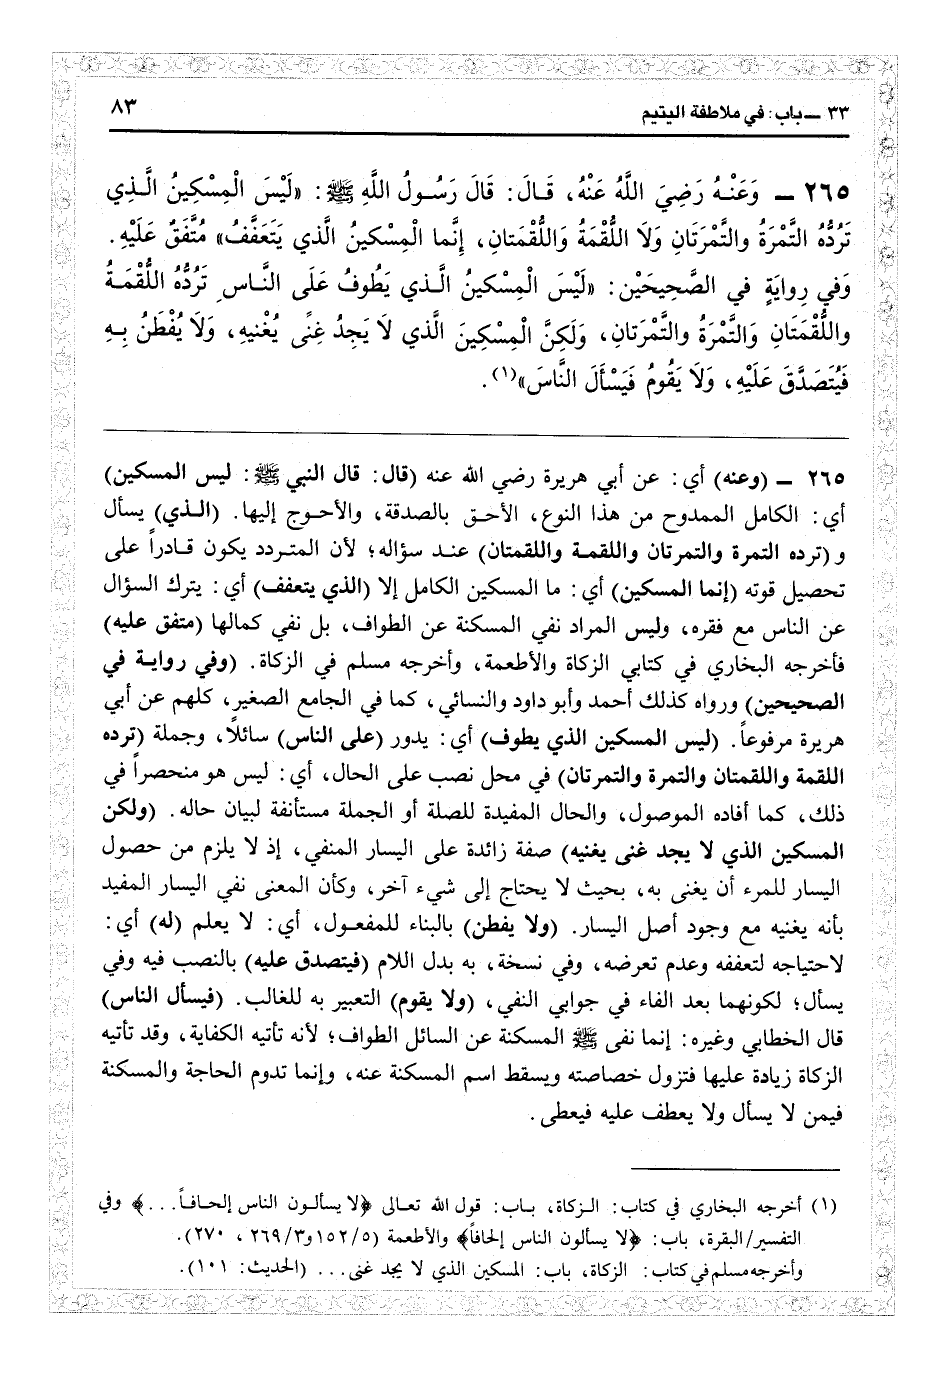 ٣٣ ــ باب: في ملاطفة اليتيم ٨٣
٢٦٥ ــ وَعَنْهُ رَضِيَ اللَّهُ عَنْهُ، قَالَ: قَالَ رَسُولُ اللَّهِ ﷺ: «لَيْسَ الْمِسْكِينُ الَّذِي
تَرُدُّهُ التَّمْرَةُ والتَّمْرَتَانِ وَلَا اللُّقْمَةُ وَاللُّقْمَتَانِ، إِنَّما الْمِسْكينُ الَّذي يَتَعَفَّفُ» مُتَّفَقٌ عَلَيْهِ.
وَفي رِوايَةٍ في الصَّحِيحَيْنِ: «لَيْسَ الْمِسْكينُ الَّذي يَطُوفُ عَلَى النَّاسِ تَرُدُّهُ اللُّقْمَةُ
واللُّقْمَتَانِ وَالتَّمْرَةُ والتَّمْرَتانِ، وَلَكِنَّ الْمِسْكِينَ الَّذي لَا يَجِدُ غِنًى يُغْنيهِ، وَلَا يُفْطَنُ بِهِ
فَيُتَصَدَّقَ عَلَيْهِ، وَلَا يَقُومُ فَيَسْأَلَ النَّاسَ»(١).
٢٦٥ ــ (وعنه) أي: عن أبي هريرة رضي الله عنه (قال: قال النبي ﷺ: ليس المسكين)
أي: الكامل الممدوح من هذا النوع، الأحق بالصدقة، والأحوج إليها. (الذي) يسأل
و (ترده التمرة والتمرتان واللقمة واللقمتان) عند سؤاله؛ لأن المتردد يكون قادراً على
تحصيل قوته (إنما المسكين) أي: ما المسكين الكامل إلا (الذي يتعفف) أي: يترك السؤال
عن الناس مع فقره، وليس المراد نفي المسكنة عن الطواف، بل نفي كمالها (متفق عليه)
فأخرجه البخاري في كتابي الزكاة والأطعمة، وأخرجه مسلم في الزكاة. (وفي رواية في
الصحيحين) ورواه كذلك أحمد وأبو داود والنسائي، كما في الجامع الصغير، كلهم عن أبي
هريرة مرفوعاً. (ليس المسكين الذي يطوف) أي: يدور (على الناس) سائلاً، وجملة (ترده
اللقمة واللقمتان والتمرة والتمرتان) في محل نصب على الحال، أي: ليس هو منحصراً في
ذلك، كما أفاده الموصول، والحال المفيدة للصلة أو الجملة مستأنفة لبيان حاله. (ولكن
المسكين الذي لا يجد غنى يغنيه) صفة زائدة على اليسار المنفي، إذ لا يلزم من حصول
اليسار للمرء أن يغنى به، بحيث لا يحتاج إلى شيء آخر، وكأن المعنى نفي اليسار المفيد
بأنه يغنيه مع وجود أصل اليسار. (ولا يفطن) بالبناء للمفعول، أي: لا يعلم (له) أي:
لاحتياجه لتعففه وعدم تعرضه، وفي نسخة، به بدل اللام (فيتصدق عليه) بالنصب فيه وفي
يسأل؛ لكونهما بعد الفاء في جوابي النفي، (ولا يقوم) التعبير به للغالب. (فيسأل الناس)
قال الخطابي وغيره: إنما نفى ﷺ المسكنة عن السائل الطواف؛ لأنه تأتيه الكفاية، وقد تأتيه
الزكاة زيادة عليها فتزول خصاصته ويسقط اسم المسكنة عنه، وإنما تدوم الحاجة والمسكنة
فيمن لا يسأل ولا يعطف عليه فيعطى.
(١) أخرجه البخاري في كتاب: الزكاة، باب: قول الله تعالى ﴿لا يسألون الناس إلحافاً...﴾ وفي
التفسير/البقرة، باب: ﴿لا يسألون الناس إلحافاً﴾ والأطعمة (١٥٢/٥ و٢٦٩/٣، ٢٧٠).
وأخرجه مسلم في كتاب: الزكاة، باب: المسكين الذي لا يجد غنى... (الحديث: ١٠١).